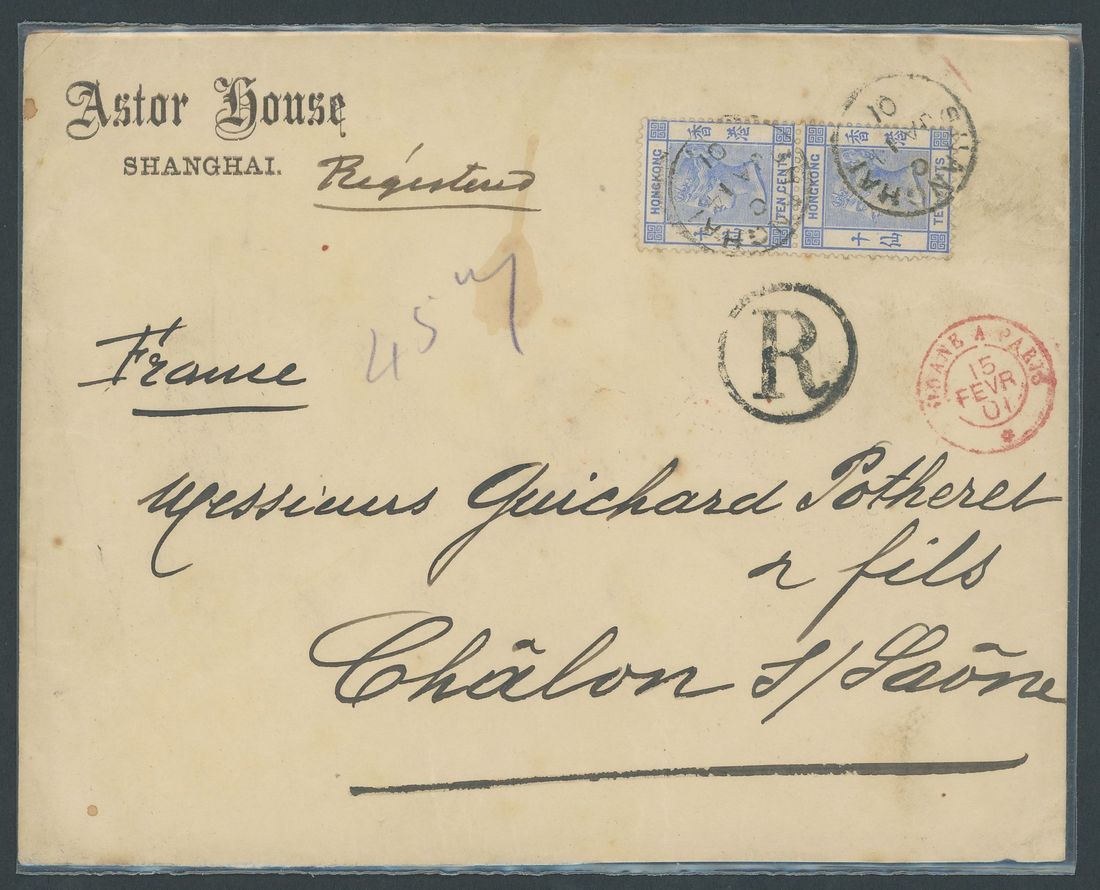 Astor House
SHANGHAI.
Régistered
香港
HONGKONG
TEN CENTS
十仙
香港
HONGKONG
十仙
SHANGHAI
JA 14
01
R
45
France
MODANE A PARIS
15
FEVR
01
Messieurs Guichard Potheret
& fils
Châlon s/ Saône